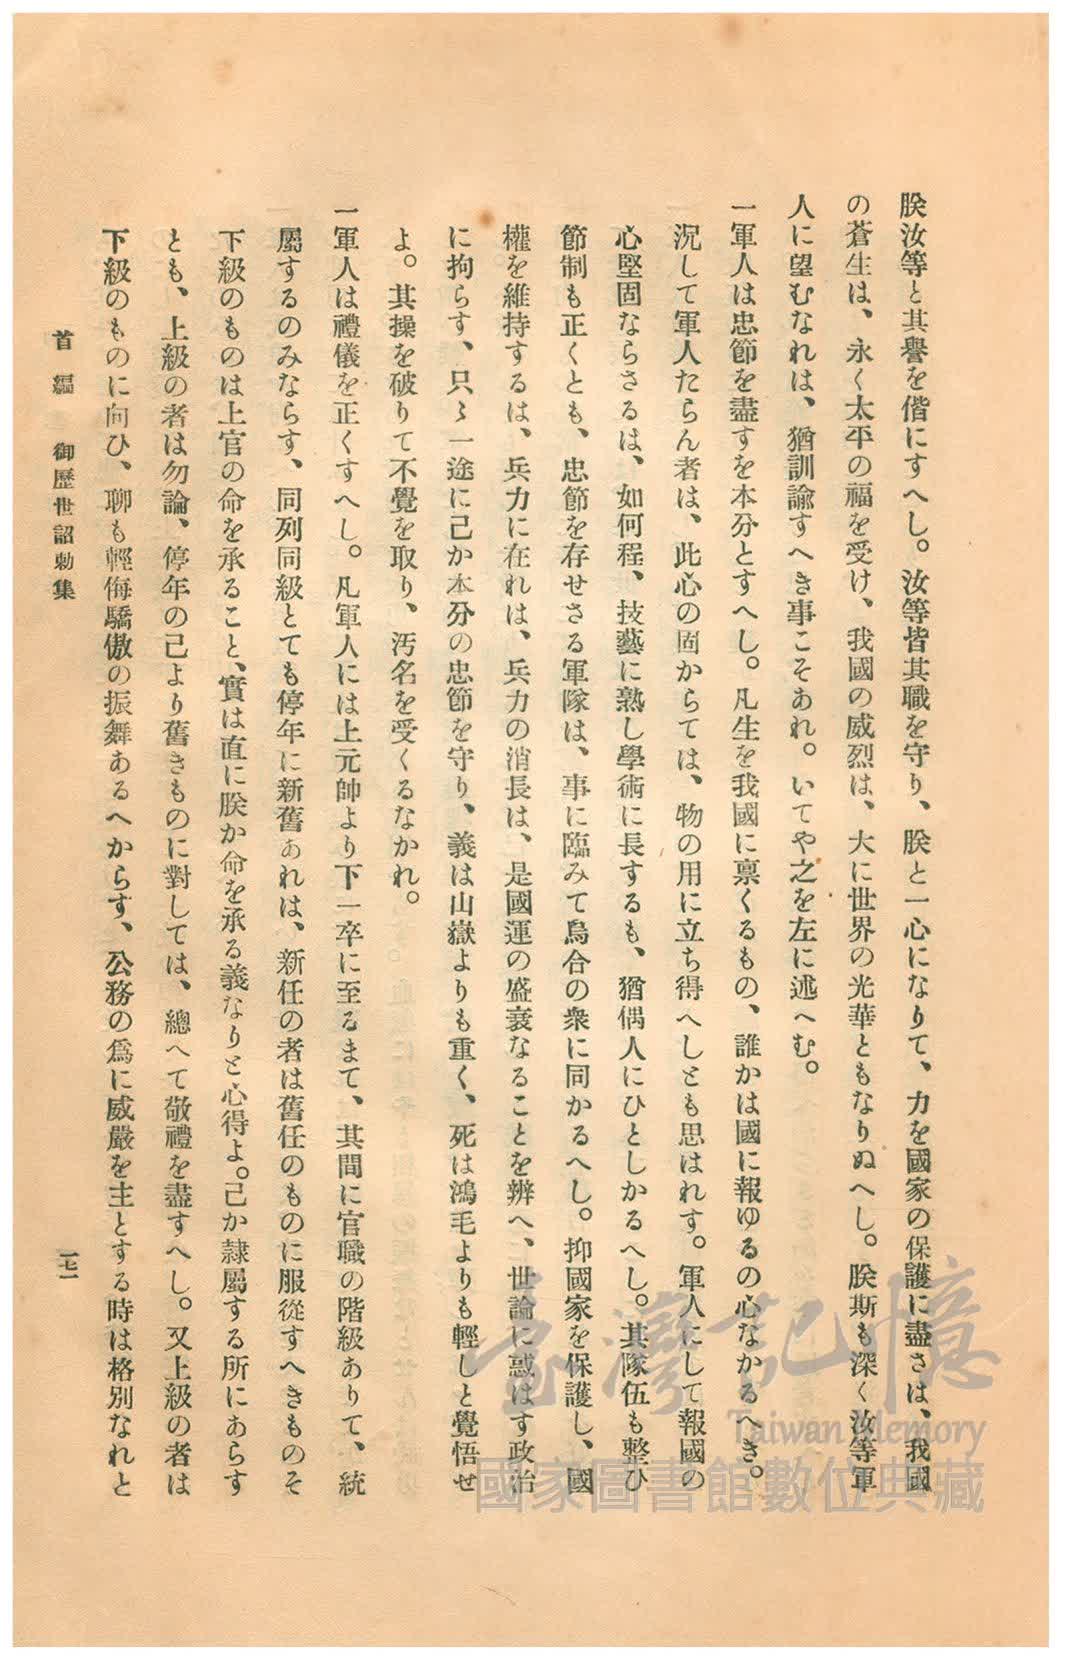 朕汝等と其譽を偕にすへし。汝等皆其職を守り、朕と一心になりて、力を國家の保護に盡さは、我國
の蒼生は、永く太平の福を受け、我國の威烈は、大に世界の光華ともなりぬへし。朕斯も深く汝等軍
人に望むなれは、猶訓諭すへき事こそあれ。いてや之を左に述へむ。
一軍人は忠節を盡すを本分とすへし。凡生を我國に禀くるもの、誰かは國に報ゆるの心なかるへき。
況して軍人たらん者は、此心の固からては、物の用に立ち得へしとも思はれす。軍人にして報國の
心堅固ならさるは、如何程、技藝に熟し學術に長するも、猶偶人にひとしかるへし。其隊伍も整ひ
節制も正くとも、忠節を存せさる軍隊は、事に臨みて烏合の衆に同かるへし。抑國家を保護し、國
權を維持するは、兵力に在れは、兵力の消長は、是國運の盛衰なることを辨へ、世論に惑はす政治
に拘らす、只〻一途に己か本分の忠節を守り、義は山嶽よりも重く、死は鴻毛よりも輕しと覺悟せ
よ。其操を破りて不覺を取り、汚名を受くるなかれ。
一軍人は禮儀を正くすへし。凡軍人には上元帥より下一卒に至るまて、其間に官職の階級ありて、統
屬するのみならす、同列同級とても停年に新舊あれは、新任の者は舊任のものに服從すへきものそ
下級のものは上官の命を承ること、實は直に朕か命を承る義なりと心得よ。己か隷屬する所にあらす
とも、上級の者は勿論、停年の己より舊きものに對しては、總へて敬禮を盡すへし。又上級の者は
下級のものに向ひ、聊も輕侮驕傲の振舞あるへからす、公務の爲に威嚴を主とする時は格別なれと
首編 御歷世詔勅集
一七一
臺灣記憶
Taiwan Memory
國家圖書館數位典藏